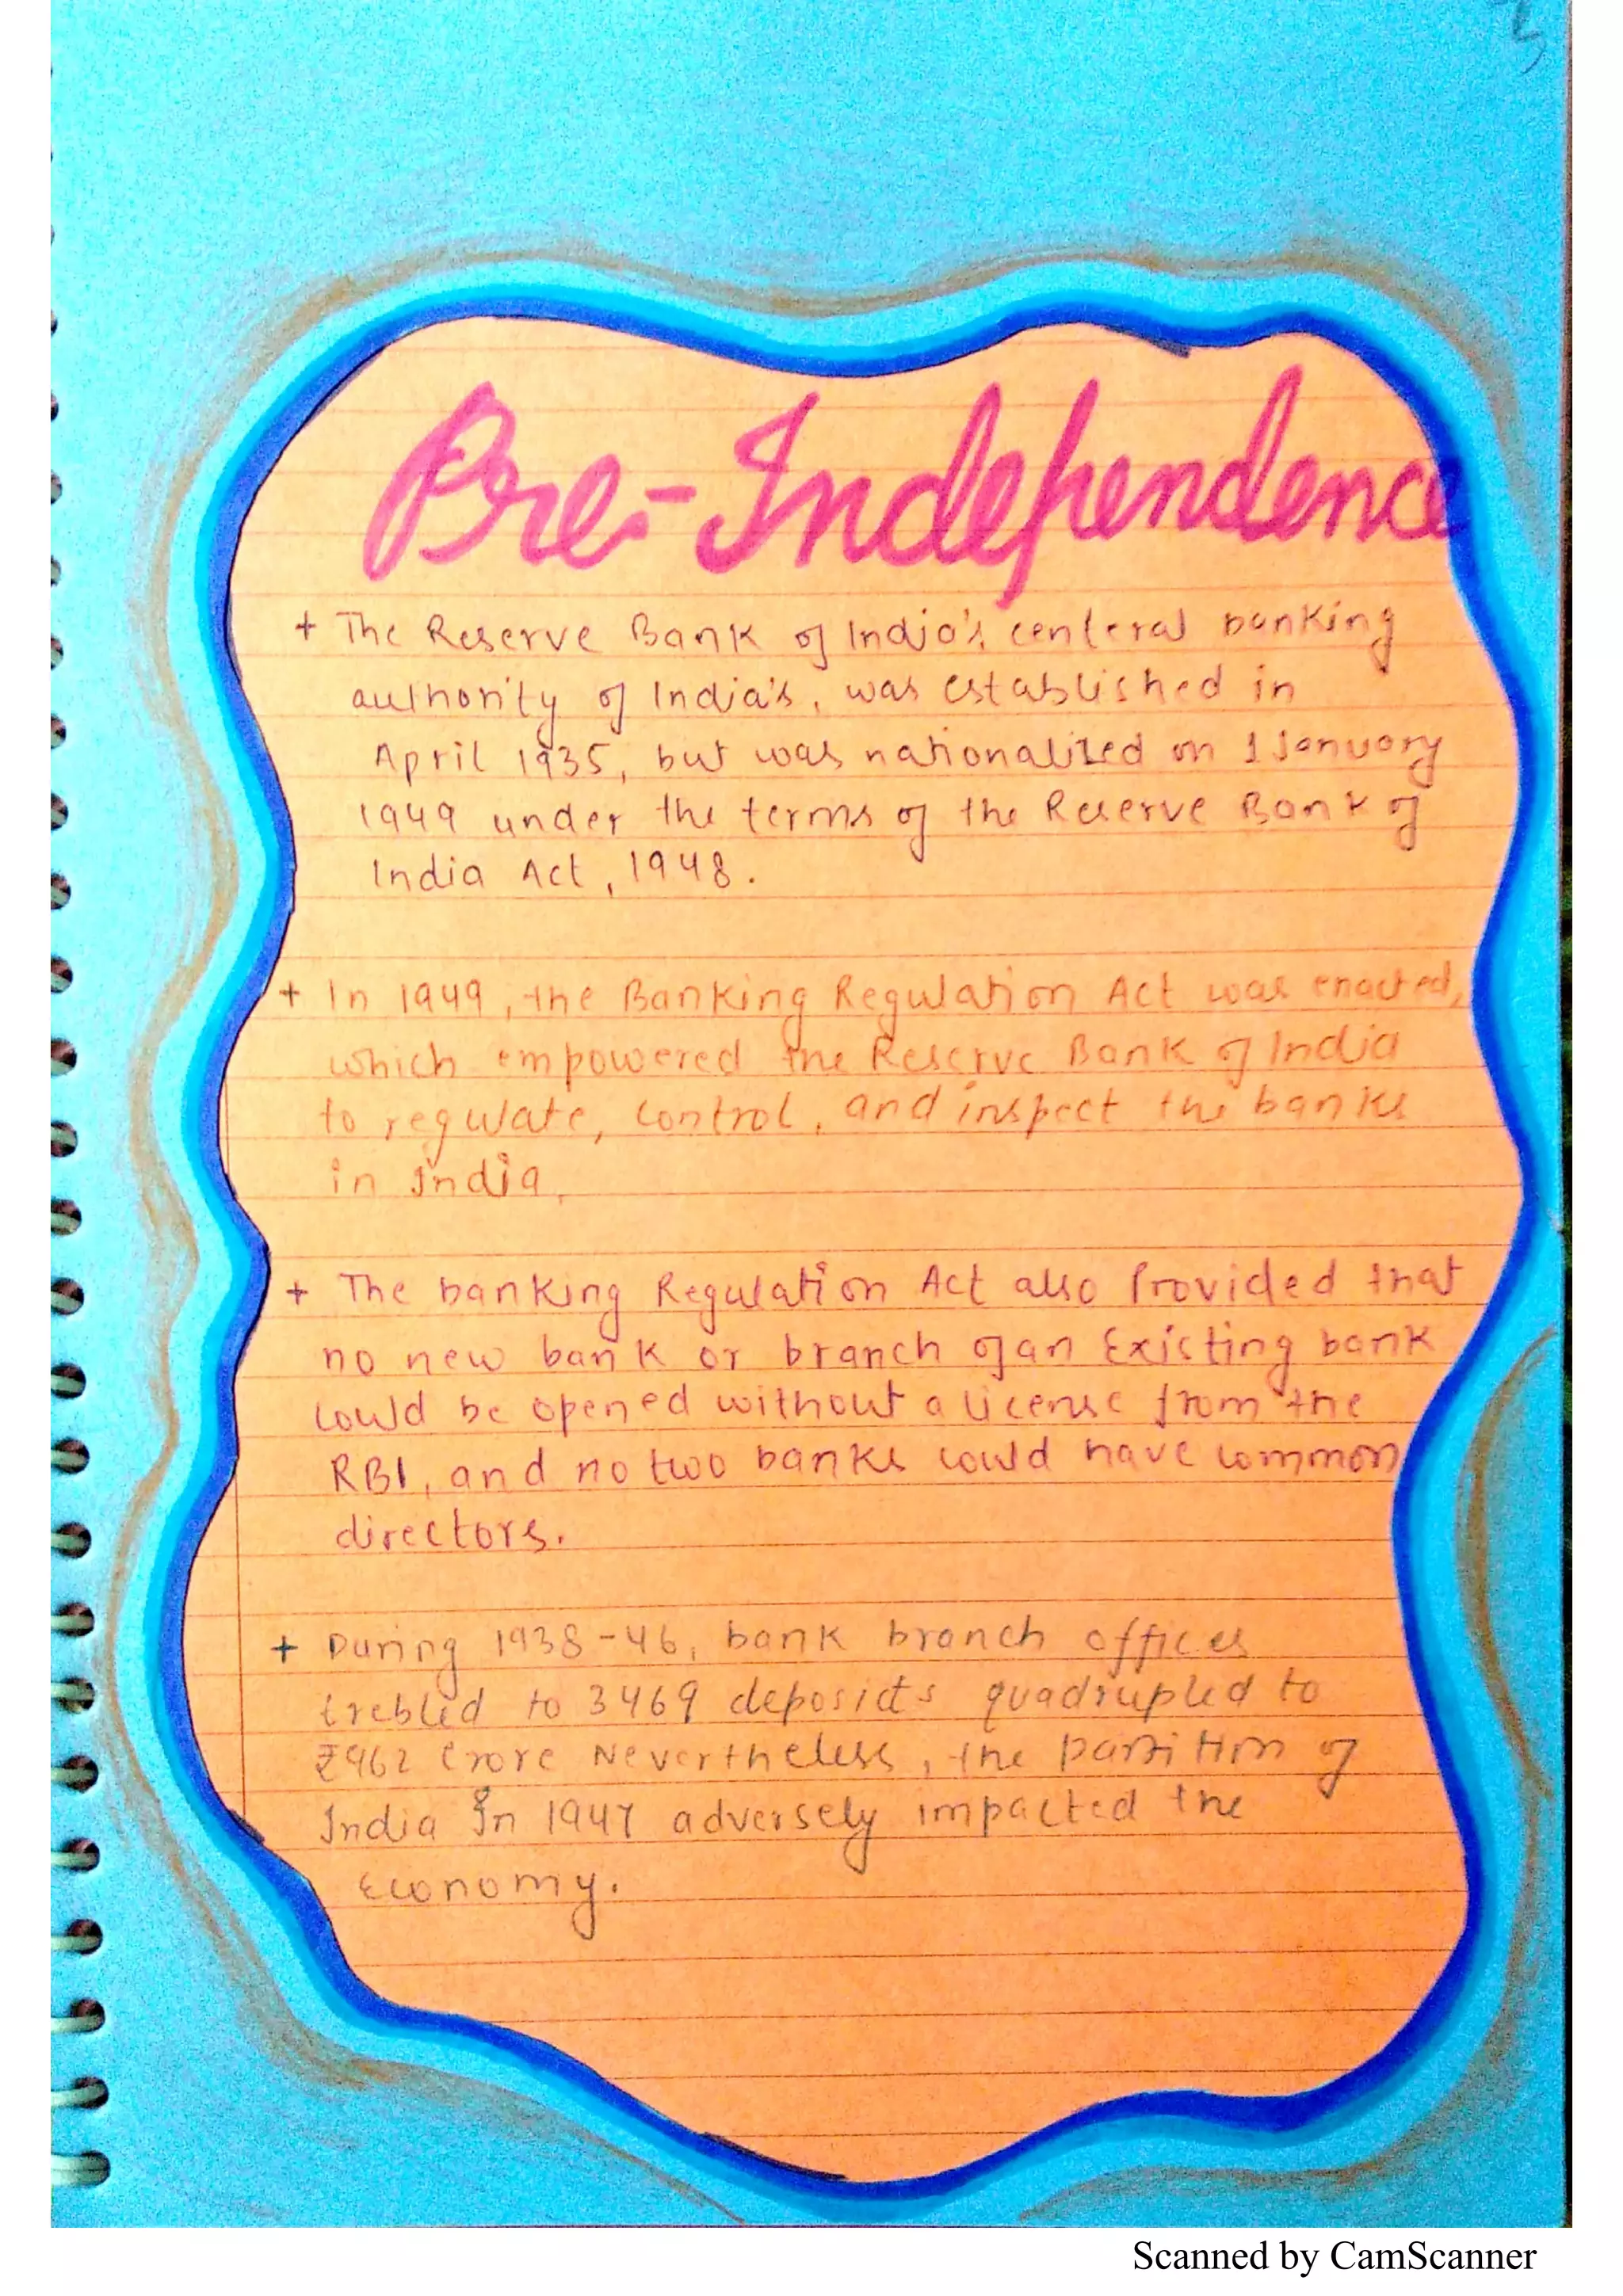 Pre-Independence
+ The Reserve Bank of India's centeral banking
authority of India's, was established in
April 1935, but was nationalized on 1 January
1949 under the terms of the Reserve Bank of
India Act, 1948.
+ In 1949, the Banking Regulation Act was enacted,
which empowered the Reserve Bank of India
to regulate, control, and inspect the banks
in India,
+ The banking Regulation Act also Provided that
no new bank or branch of an Existing bank
could be opened without a license from the
RBI, and no two banks could have common
directors.
+ During 1938-46, bank branch offices
trebled to 3469 deposicts quadrupled to
₹962 Crore Nevertheless, the partition of
India In 1947 adversely impacted the
Economy.
Scanned by CamScanner